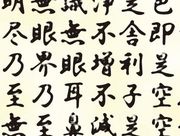 色即是空空
是舍利子是
淨不增不減
識無眼耳鼻
無眼界乃至
明尽乃至無